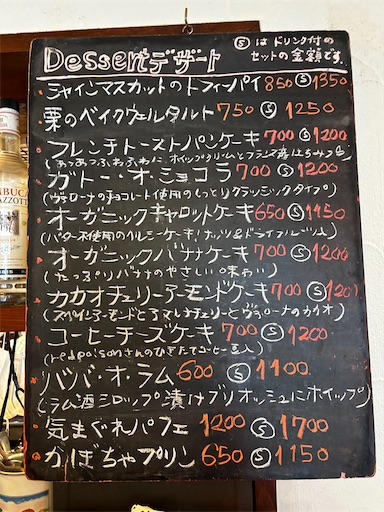 Dessert デザート
Ⓢは ドリンク付の
セットの金額です。
シャインマスカットのトフィーパイ 850 Ⓢ 1350
栗のベイクウェルタルト 750 Ⓢ 1250
フレンチトーストパンケーキ 700 Ⓢ 1200
(あつあつふわふわに ホイップクリームとフランス産はちみつ
ガトー・オ・ショコラ 700 Ⓢ 1200
(ヴァローナのチョコレート使用のしっとりクラシックタイプ)
オーガニックキャロットケーキ 650 Ⓢ 1150
(バター不使用のヘルシーケーキ! ナッツ&ドライフルーツ入り)
オーガニックバナナケーキ 700 Ⓢ 1200
(たっぷりバナナのやさしい味わい)
カカオチェリーアーモンドケーキ 700 Ⓢ 1200
(スペインアーモンドとアマレナチェリーとヴァローナのカカオ)
コーヒーチーズケーキ 700 Ⓢ 1200
(redpoisonさんのひきたてコーヒー豆入)
ババ・オ・ラム 600 Ⓢ 1100
(ラム酒シロップ漬けブリオッシュにホイップ)
気まぐれパフェ 1200 Ⓢ 1700
かぼちゃプリン 650 Ⓢ 1150